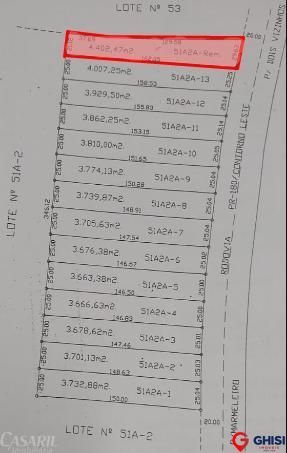 LOTE Nº 53
20.00
P/ DOIS VIZINHOS
4.402,47m2. 51A2A-Rem.
25.00 4.007,25m2. 51A2A-13 25.25
158.53
25.00 3.929,50m2. 51A2A-12 25.14
155.83
25.00 3.862,25m2. 51A2A-11 25.14
153.15
25.00 3.810,00m2. 51A2A-10 25.04
151.65
25.00 3.774,13m2. 51A2A-9 25.04
150.28
25.00 3.739,87m2. 51A2A-8 25.04
148.91
25.00 3.705,63m2. 51A2A-7 25.04
147.54
25.00 3.676,38m2. 51A2A-6 25.02
146.57
25.00 3.663,38m2. 51A2A-5 25.00
146.50
25.00 3.666,63m2. 51A2A-4 25.00
146.83
25.00 3.678,62m2. 51A2A-3 25.01
147.46
25.00 3.701,13m2. 51A2A-2
148.63
25.00 3.732,88m2. 51A2A-1
150.00
20.00
LOTE Nº 51A-2
LOTE Nº 51A-2
RODOVIA PR-180/CONTORNO LESTE
P/ MARMELEIRO
CASARIL
GHISI
IMÓVEIS